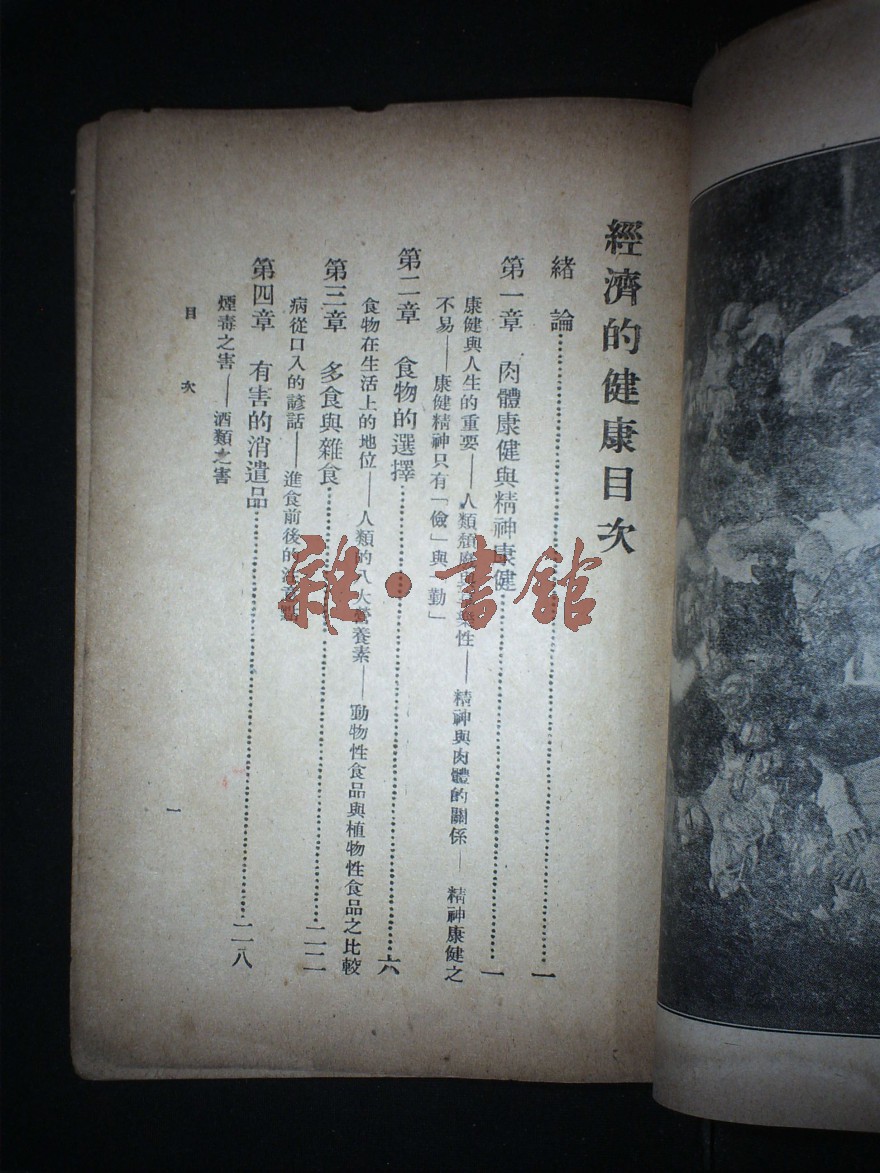 經濟的健康目次
緒論 一
第一章 肉體康健與精神康健 一
康健與人生的重要——人類頹廢與 藥性——精神與肉體的關係——精神康健之
不易——康健精神只有「儉」與「勤」
第二章 食物的選擇 六
食物在生活上的地位——人類的八大營養素——動物性食品與植物性食品之比較
第三章 多食與雜食 二二
病從口入的諺話——進食前後的注意點
第四章 有害的消遣品 二八
煙毒之害——酒類之害
目次
一
雜·書館